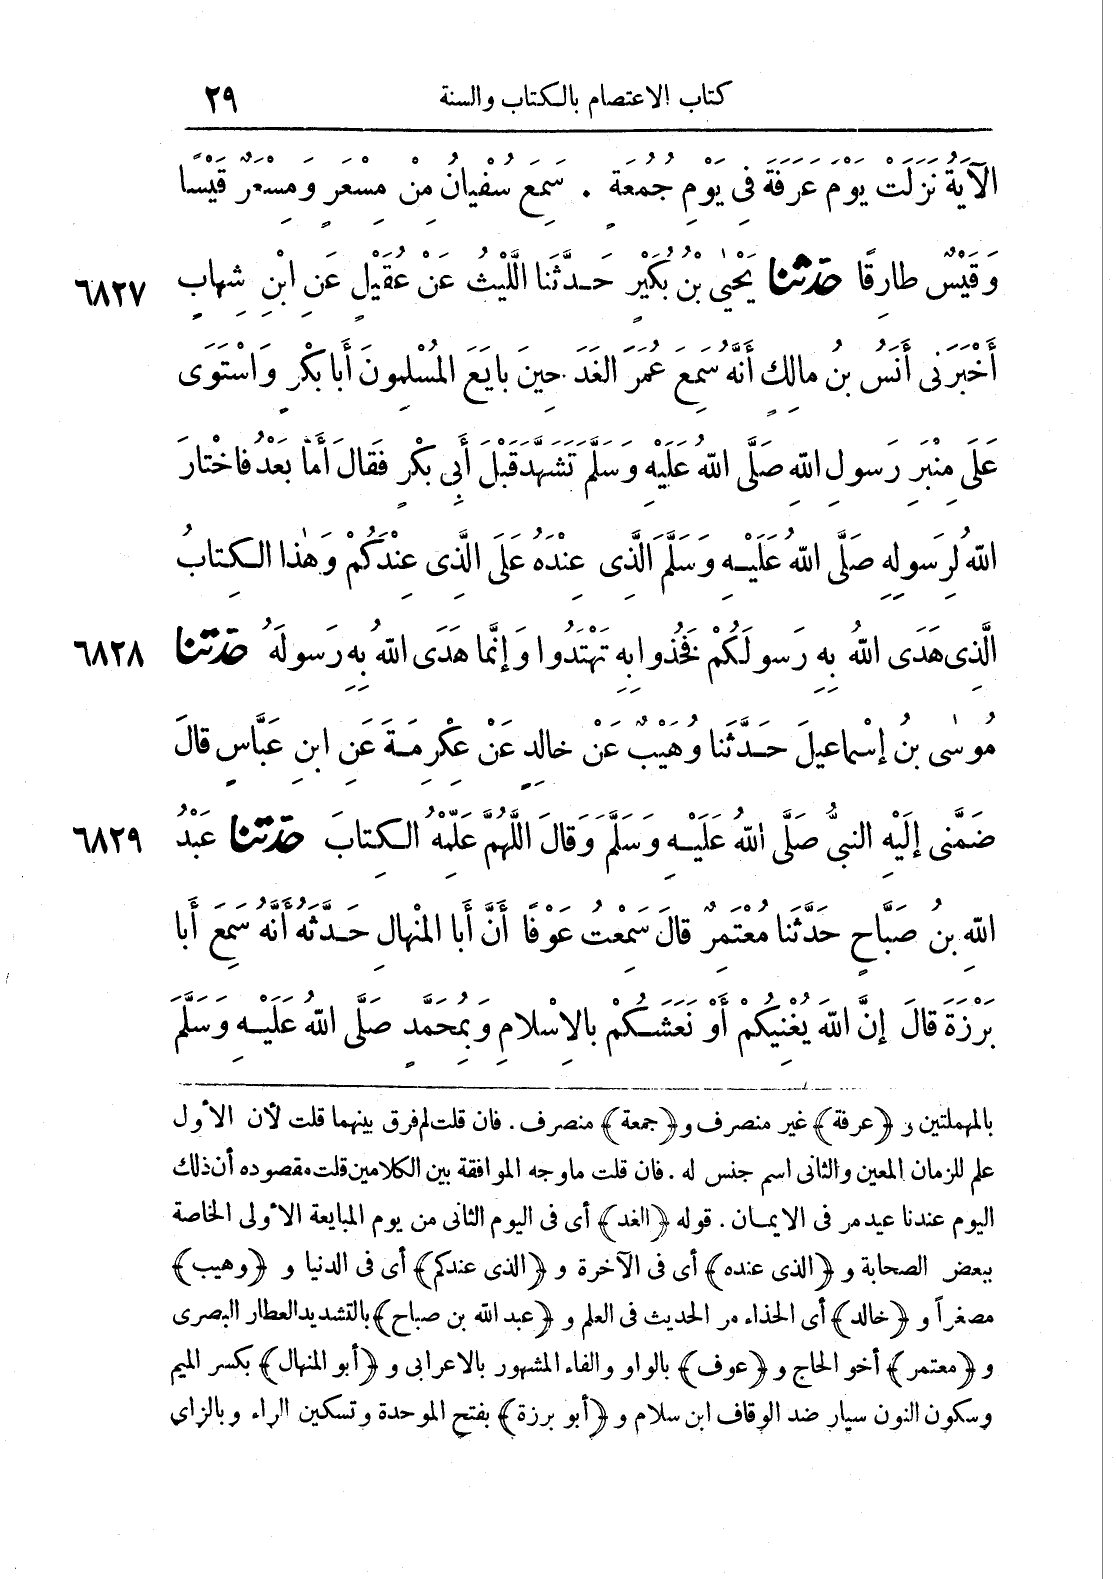 كتاب الاعتصام بالكتاب والسنة ٢٩
الْآيَةُ نَزَلَتْ يَوْمَ عَرَفَةَ فِى يَوْمِ جُمُعَةٍ . سَمِعَ سُفْيَانُ مِنْ مِسْعَرٍ وَمِسْعَرٌ قَيْسًا
وَقَيْسٌ طارِقًا حدثنا يَحْيَى بْنُ بُكَيْرٍ حَدَّثَنا اللَّيْثُ عَنْ عُقَيْلٍ عَنِ ابْنِ شِهابٍ ٦٨٢٧
أَخْبَرَنِى أَنَسُ بنُ مالِكٍ أَنَّهُ سَمِعَ عُمَرَ الغَدَ حِينَ بايَعَ المُسْلِمونَ أَبا بَكْرٍ وَاسْتَوَى
عَلَى مِنْبَرِ رَسولِ اللهِ صَلَّى اللهُ عَلَيْهِ وَسَلَّمَ تَشَهَّدَ قَبْلَ أَبِى بَكْرٍ فَقالَ أَمَّا بَعْدُ فَاخْتارَ
اللهُ لِرَسولِهِ صَلَّى اللهُ عَلَيْهِ وَسَلَّمَ الَّذِى عِنْدَهُ عَلَى الَّذِى عِنْدَكُمْ وَهٰذا الكِتابُ
الَّذِى هَدَى اللهُ بِهِ رَسولَكُمْ فَخُذُوا بِهِ تَهْتَدُوا وَإِنَّما هَدَى اللهُ بِهِ رَسولَهُ حدثنا ٦٨٢٨
مُوسٰى بنُ إِسْماعِيلَ حَدَّثَنا وُهَيْبٌ عَنْ خالِدٍ عَنْ عِكْرِمَةَ عَنِ ابنِ عَبَّاسٍ قالَ
ضَمَّنِى إِلَيْهِ النبىُّ صَلَّى اللهُ عَلَيْهِ وَسَلَّمَ وَقالَ اللَّهُمَّ عَلِّمْهُ الكِتابَ حدثنا عَبْدُ ٦٨٢٩
اللهِ بنُ صَبَّاحٍ حَدَّثَنا مُعْتَمِرٌ قالَ سَمِعْتُ عَوْفًا أَنَّ أَبا المِنْهالِ حَدَّثَهُ أَنَّهُ سَمِعَ أَبا
بَرْزَةَ قالَ إِنَّ اللهَ يُغْنِيكُمْ أَوْ نَعَشَكُمْ بِالإِسْلامِ وَبِمُحَمَّدٍ صَلَّى اللهُ عَلَيْهِ وَسَلَّمَ
بالمهملتين و ﴿عرفة﴾ غير منصرف و﴿جمعة﴾ منصرف . فان قلت لم فرق بينهما قلت لأن الأول
علم للزمان المعين والثانى اسم جنس له . فان قلت ما وجه الموافقة بين الكلامين قلت مقصوده أن ذلك
اليوم عندنا عيد مر فى الايمان . قوله ﴿الغد﴾ أى فى اليوم الثانى من يوم المبايعة الأولى الخاصة
ببعض الصحابة و ﴿الذى عنده﴾ أى فى الآخرة و ﴿الذى عندكم﴾ أى فى الدنيا و ﴿وهيب﴾
مصغراً و ﴿خالد﴾ أى الحذاء مر الحديث فى العلم و ﴿عبد الله بن صباح﴾ بالتشديد العطار البصرى
و ﴿معتمر﴾ أخو الحاج و ﴿عوف﴾ بالواو والفاء المشهور بالاعرابى و ﴿أبو المنهال﴾ بكسر الميم
وسكون النون سيار ضد الوقاف ابن سلام و ﴿أبو برزة﴾ بفتح الموحدة وتسكين الراء وبالزاى